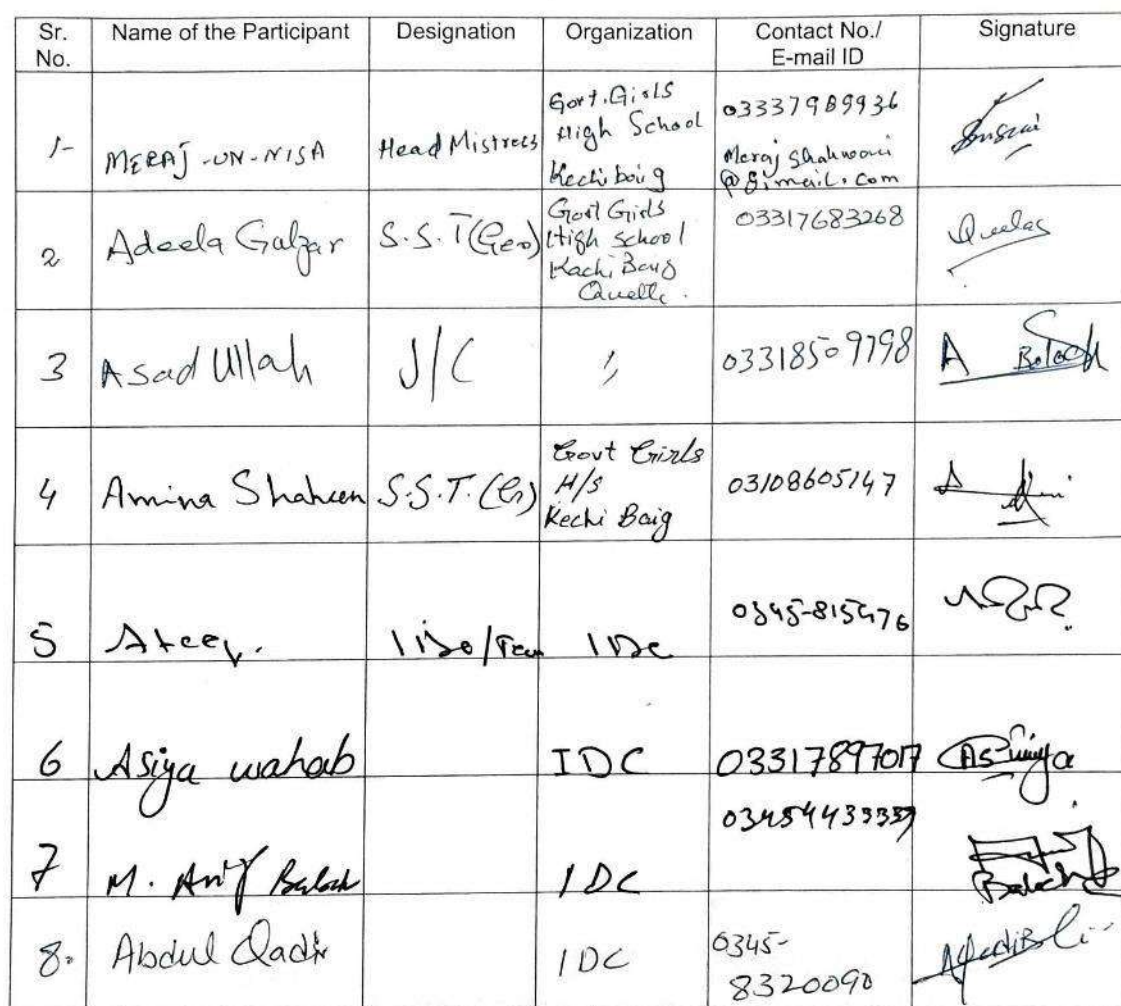 Sr. No. Name of the Participant Designation Organization Contact No./ E-mail ID Signature
1- MERAJ-UN-NISA Head Mistress Govt. Girls High School Kechi baig 03337989936 Meraj Shahwani @gimail.com
2 Adeela Gulzar S.S.T (Geo) Govt Girls High School Kachi Baig Quetta. 03317683268
3 Asad Ullah J/C 〃 03318509798 A Baloch
4 Amina Shaheen S.S.T. (G) Govt Girls H/S Kechi Baig 03108605147
5 Ateeq. IDC 0345-815476
6 Asiya wahab IDC 03317897017 Asiya
7 M. Arif Baloch IDC 03454433339 Baloch
8. Abdul Qadir IDC 0345-8320090